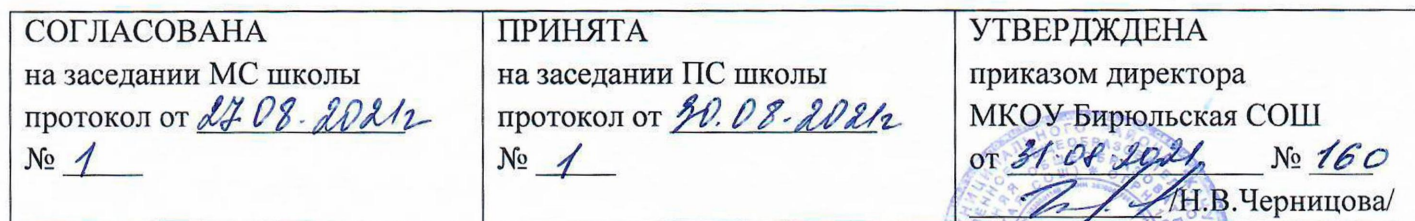 СОГЛАСОВАНА
на заседании МС школы
протокол от 27.08.2021г
№ 1
ПРИНЯТА
на заседании ПС школы
протокол от 30.08.2021г
№ 1
УТВЕРДЖДЕНА
приказом директора
МКОУ Бирюльская СОШ
от 31.08.2021г № 160
/Н.В.Черницова/